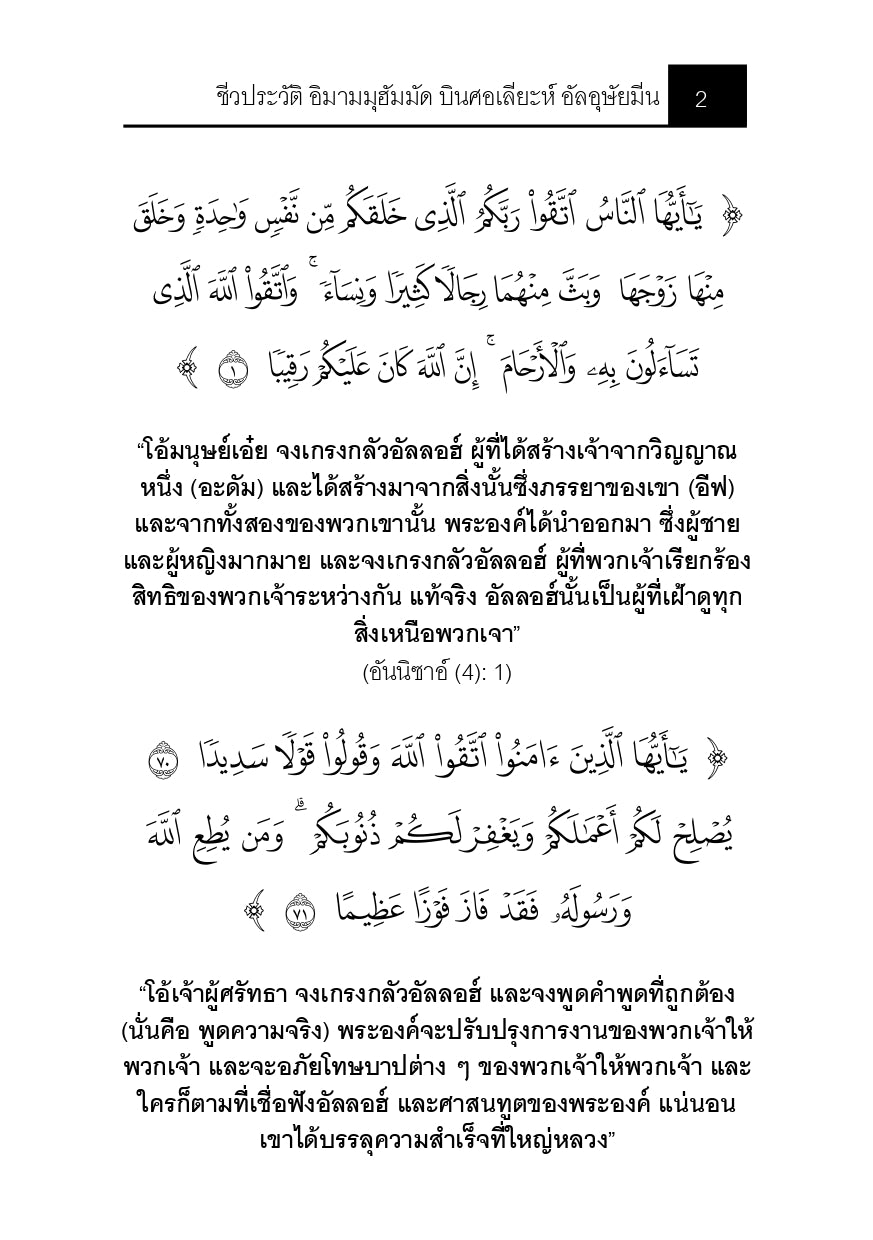 ชีวประวัติ อิมามมุฮัมมัด บินศอเลียะห์ อัลอุษัยมีน 2
﴿ يَـٰٓأَيُّهَا ٱلنَّاسُ ٱتَّقُوا۟ رَبَّكُمُ ٱلَّذِى خَلَقَكُم مِّن نَّفْسٍ وَٰحِدَةٍ وَخَلَقَ
مِنْهَا زَوْجَهَا وَبَثَّ مِنْهُمَا رِجَالًا كَثِيرًا وَنِسَآءً ۚ وَٱتَّقُوا۟ ٱللَّهَ ٱلَّذِى
تَسَآءَلُونَ بِهِۦ وَٱلْأَرْحَامَ ۚ إِنَّ ٱللَّهَ كَانَ عَلَيْكُمْ رَقِيبًا ١ ﴾
“โอ้มนุษย์เอ๋ย จงเกรงกลัวอัลลอฮ์ ผู้ที่ได้สร้างเจ้าจากวิญญาณ
หนึ่ง (อะดัม) และได้สร้างมาจากสิ่งนั้นซึ่งภรรยาของเขา (อีฟ)
และจากทั้งสองของพวกเขานั้น พระองค์ได้นำออกมา ซึ่งผู้ชาย
และผู้หญิงมากมาย และจงเกรงกลัวอัลลอฮ์ ผู้ที่พวกเจ้าเรียกร้อง
สิทธิของพวกเจ้าระหว่างกัน แท้จริง อัลลอฮ์นั้นเป็นผู้ที่เฝ้าดูทุก
สิ่งเหนือพวกเจา”
(อันนิซาอ์ (4): 1)
﴿ يَـٰٓأَيُّهَا ٱلَّذِينَ ءَامَنُوا۟ ٱتَّقُوا۟ ٱللَّهَ وَقُولُوا۟ قَوْلًا سَدِيدًا ٧٠
يُصْلِحْ لَكُمْ أَعْمَـٰلَكُمْ وَيَغْفِرْ لَكُمْ ذُنُوبَكُمْ ۗ وَمَن يُطِعِ ٱللَّهَ
وَرَسُولَهُۥ فَقَدْ فَازَ فَوْزًا عَظِيمًا ٧١ ﴾
“โอ้เจ้าผู้ศรัทธา จงเกรงกลัวอัลลอฮ์ และจงพูดคำพูดที่ถูกต้อง
(นั่นคือ พูดความจริง) พระองค์จะปรับปรุงการงานของพวกเจ้าให้
พวกเจ้า และจะอภัยโทษบาปต่าง ๆ ของพวกเจ้าให้พวกเจ้า และ
ใครก็ตามที่เชื่อฟังอัลลอฮ์ และศาสนทูตของพระองค์ แน่นอน
เขาได้บรรลุความสำเร็จที่ใหญ่หลวง”